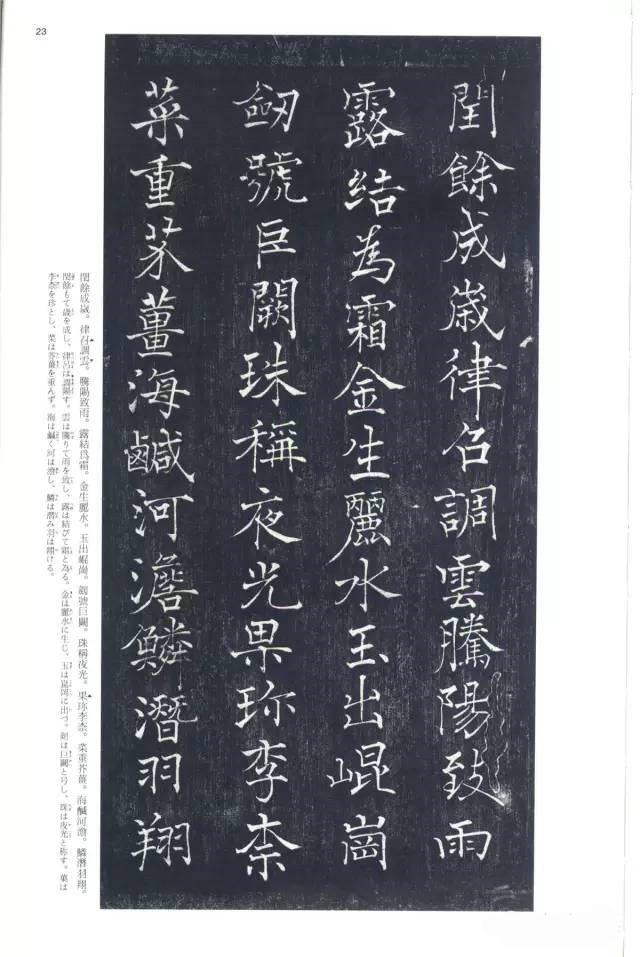 23
閏餘成歲律召調雲騰陽致雨
露結為霜金生麗水玉出崐崗
劔號巨闕珠稱夜光果珎李柰
菜重芥薑海鹹河澹鱗潛羽翔
閏餘成歲。律召調雲。騰陽致雨。露結爲霜。金生麗水。玉出崐崗。劔號巨闕。珠稱夜光。果珎李柰。菜重芥薑。海鹹河澹。鱗潛羽翔。
閏餘もて歳を成し、律呂は調陽す。雲は騰りて雨を致し、露は結びて霜と為る。金は麗水に生じ、玉は崑岡に出づ。剣は巨闕と号し、珠は夜光と称す。菓は
李柰を珍とし、菜は芥薑を重んず。海は鹹く河は澹し、鱗は潛み羽は翔ける。